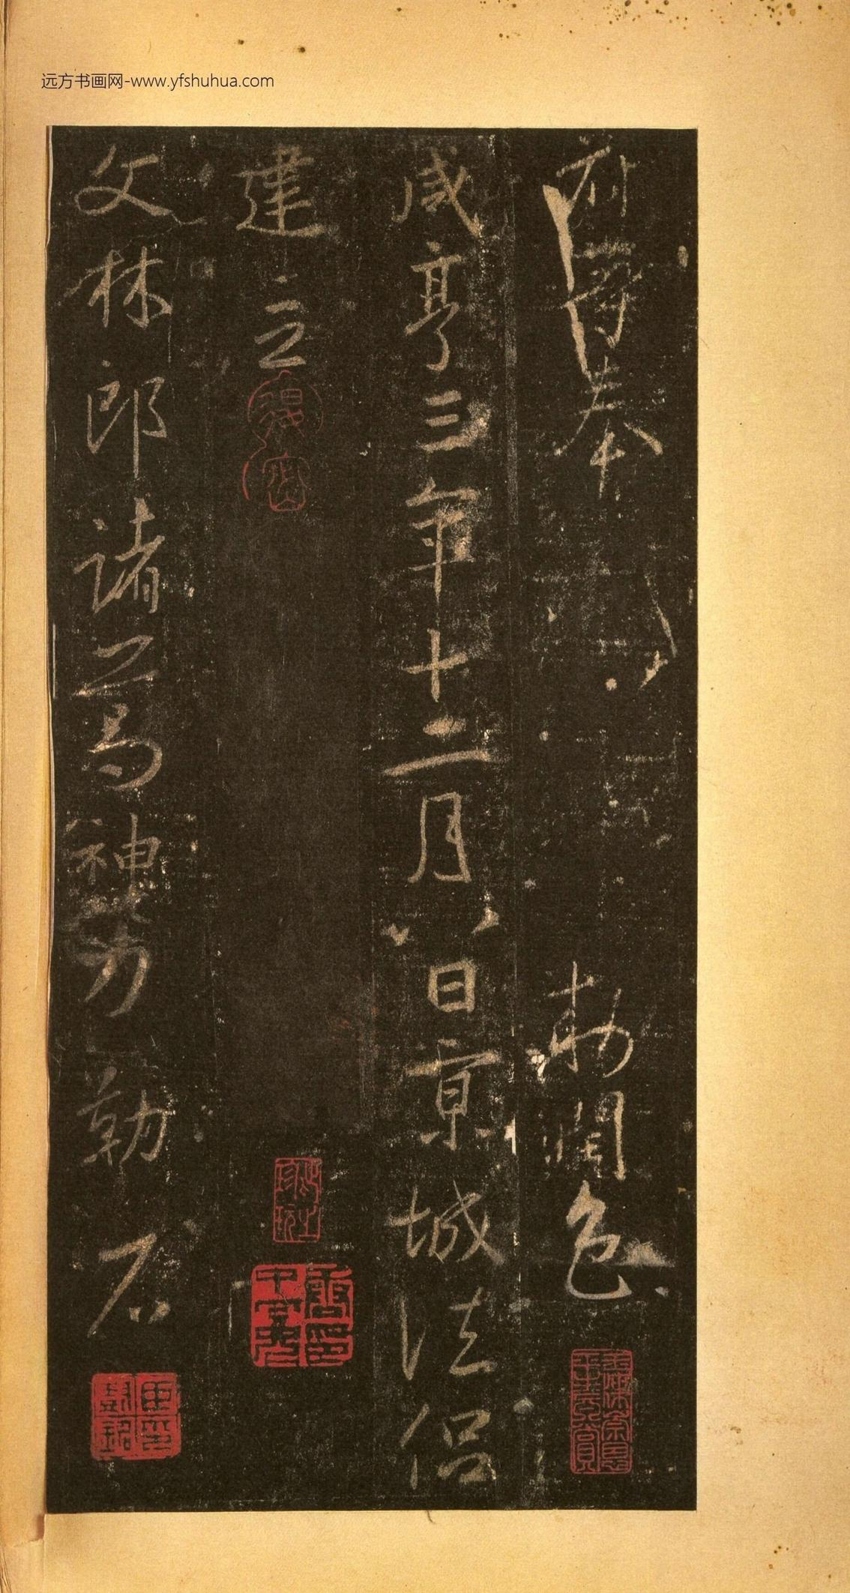 远方书画网-www.yfshuhua.com
府等奉 勅潤色
咸亨三年十二月八日京城法侣
建立
文林郎諸葛神力勒石